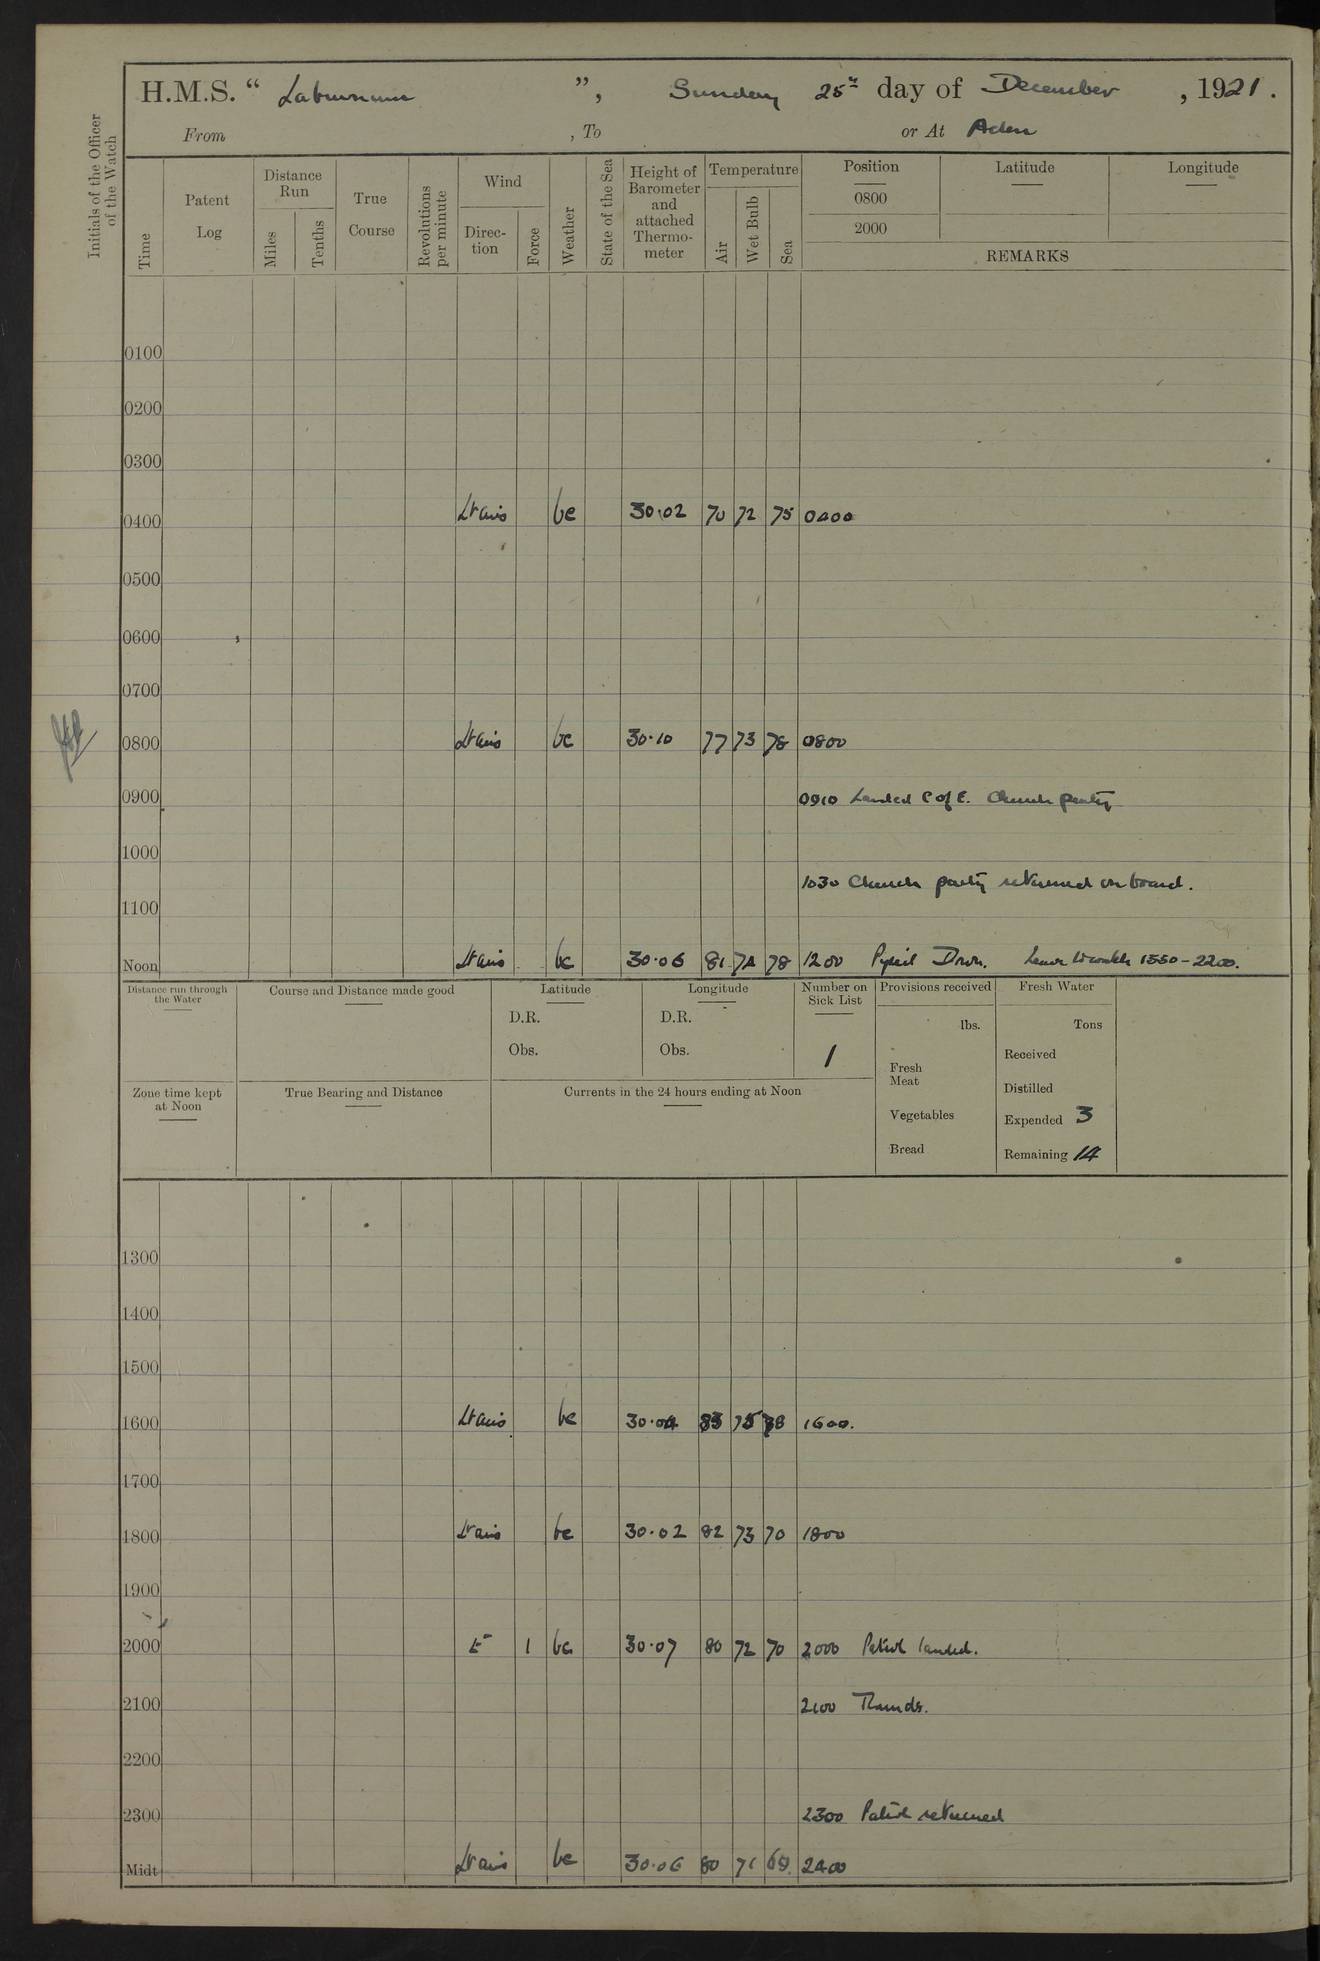 H.M.S. " Laburnum ", Sunday 25th day of December, 1921.
From , To or At Aden
Initials of the Officer of the Watch
Time
Patent Log
Distance Run
Miles
Tenths
True Course
Revolutions per minute
Wind
Direction
Force
Weather
State of the Sea
Height of Barometer and attached Thermometer
Temperature
Air
Wet Bulb
Sea
Position Latitude Longitude
0800
2000
REMARKS
0100
0200
0300
0400 Lt airs bc 30.02 70 72 75 0400
0500
0600
0700
0800 Lt airs bc 30.10 77 73 78 0800
0900 0910 Landed C of E. Church party
1000
1030 Church party returned on board.
1100
Noon Lt airs bc 30.06 81 74 78 1200 Down. Leave to watch 1330-2200.
Distance run through the Water
Course and Distance made good
Latitude
D.R.
Obs.
Longitude
D.R.
Obs.
Number on Sick List
1
Provisions received
lbs.
Fresh Meat
Vegetables
Bread
Fresh Water
Tons
Received
Distilled
Expended 3
Remaining 14
Zone time kept at Noon
True Bearing and Distance
Currents in the 24 hours ending at Noon
1300
1400
1500
1600 Lt airs bc 30.04 83 75 78 1600.
1700
1800 Lt airs bc 30.02 82 73 70 1800
1900
2000 E 1 bc 30.07 80 72 70 2000 Patrol landed.
2100 2100 Rounds.
2200
2300 2300 Patrol returned
Midt Lt airs bc 30.06 80 71 69. 2400